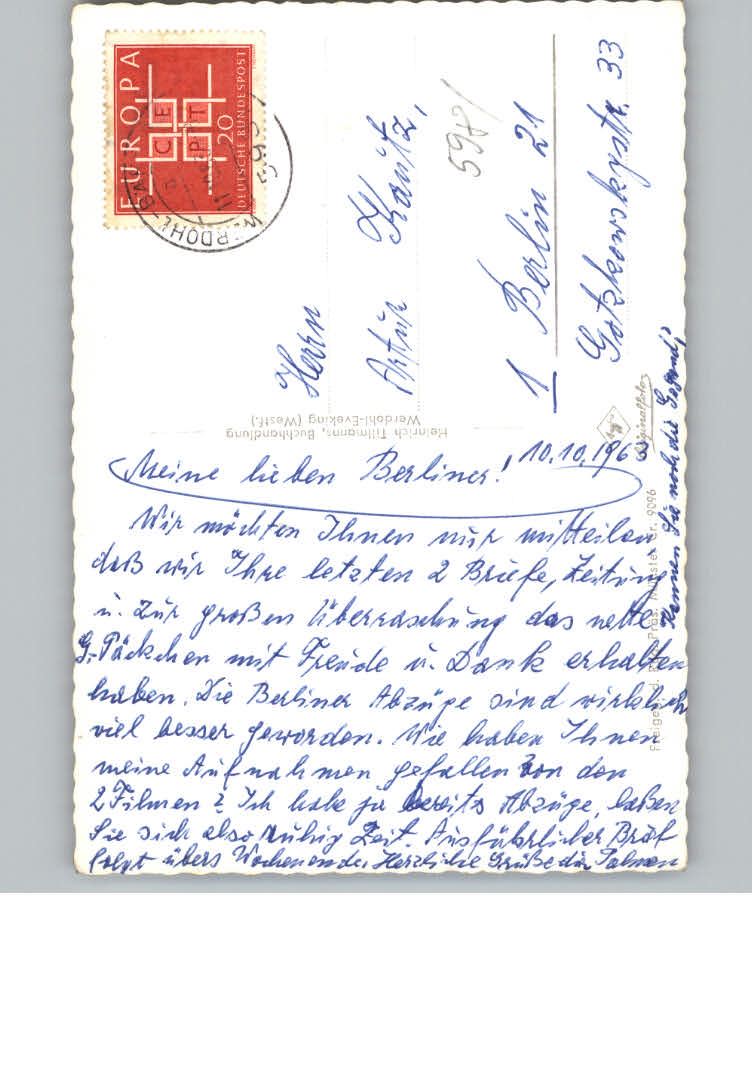 EUROPA
CEPT
20
DEUTSCHE BUNDESPOST
598/
Herrn
Artur Kautz,
1 Berlin 21
Gotzkowskystr. 33
Heinrich Tillmanns, Buchhandlung
Werdohl-Eveking (Westf.)
Originalfoto
Meine lieben Berliner! 10.10.1963
Wir möchten Ihnen nur mitteilen
daß wir Ihre letzten 2 Briefe, Zeitung
u. zur großen Überraschung das nette
G.-Päckchen mit Freude u. Dank erhalten
haben. Die Berliner Abzüge sind wirklich
viel besser geworden. Wie haben Ihnen
meine Aufnahmen gefallen von den
2 Filmen? Ich habe ja bereits Abzüge, laßen
Sie sich also ruhig Zeit. Ausführlicher Brief
folgt übers Wochenende. Herzliche Grüße die
Kennen Sie noch die Gegend?
Freigeg. d. Präs. Münster Nr. 9096